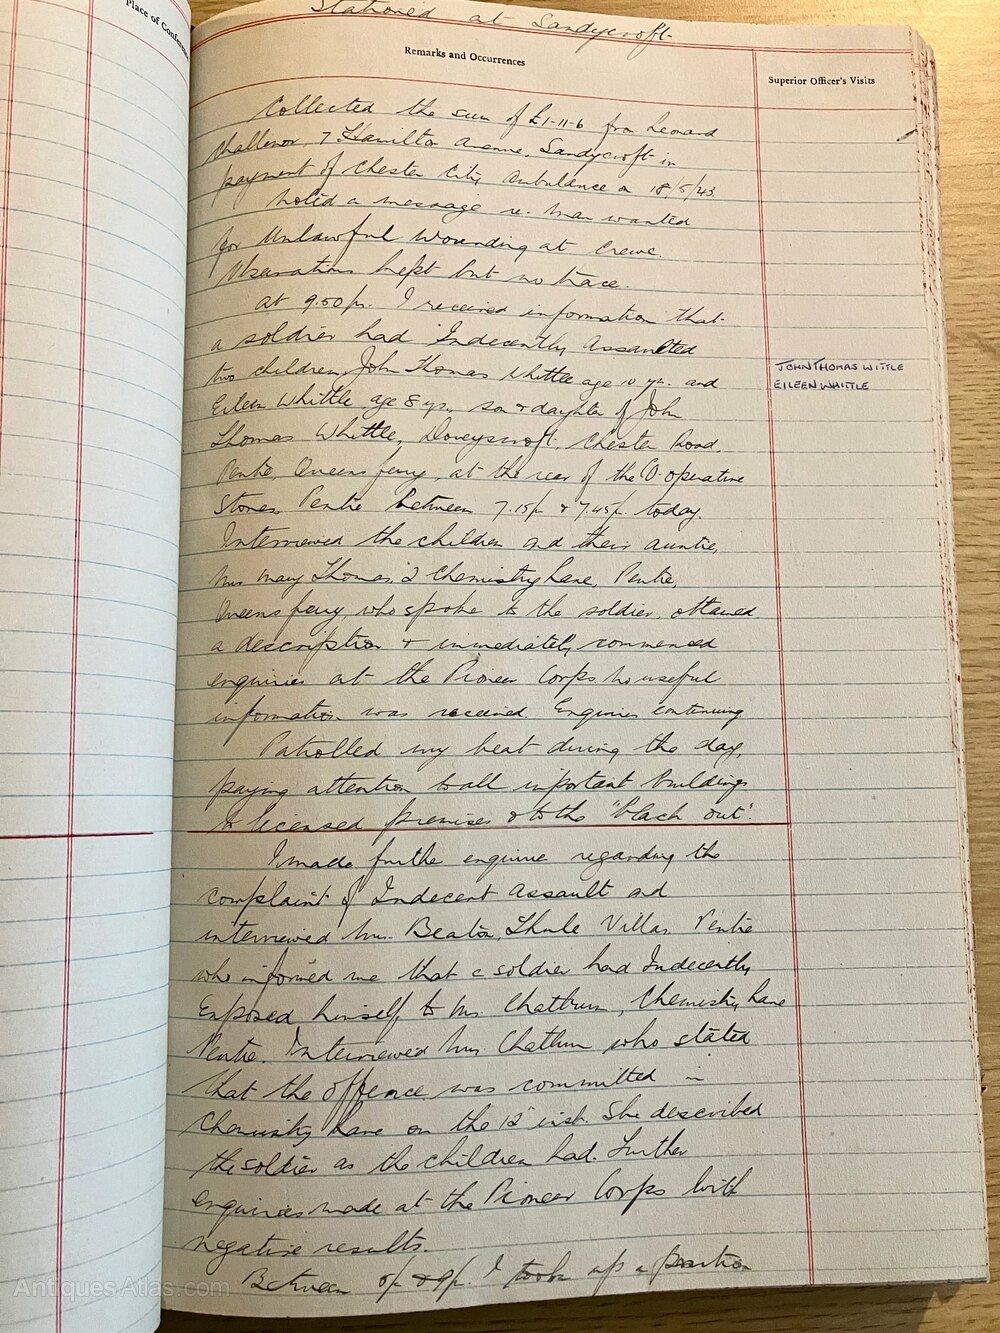 Place of Conference
Stationed at Sandycroft
Remarks and Occurrences
Superior Officer's Visits
Collected the sum of £1-11-6 from Leonard
Challenor 7 Hamilton Avenue, Sandycroft in
payment of Chester City Ambulance on 18/5/43.
Noted a message re. man wanted
for Unlawful Wounding at Crewe.
Observations kept but no trace.
At 9.50p. I received information that
a soldier had Indecently Assaulted
JOHN THOMAS WITTLE
two children, John Thomas Whittle age 10 yrs. and
EILEEN WHITTLE
Eileen Whittle age 8 yrs., son & daughter of John
Thomas Whittle, Chester Road,
Pentre, Queensferry, at the rear of the Co-operative
Stores, Pentre between 7.15p & 7.45p. today.
Interviewed the children and their auntie,
Mrs Mary Thomas, 2 Chemistry Lane, Pentre,
Queensferry, who spoke to the soldier, obtained
a description & immediately commenced
enquiries at the Pioneer Corps, no useful
information was received. Enquiries continuing.
Patrolled my beat during the day,
paying attention to all important buildings
to licensed premises & to the "black out".
I made further enquiries regarding the
complaint of Indecent Assault and
interviewed Mrs. Beaton, Thule Villas, Pentre
who informed me that a soldier had Indecently
Exposed himself to Mrs Chatburn, Chemistry Lane
Pentre. Interviewed Mrs Chatburn who stated
that the offence was committed in
Chemistry Lane on the 12th inst. She described
the soldier as the children had. Further
enquiries made at the Pioneer Corps with
negative results.
Between 8p & 9p. I took up a position
AntiquesAtlas.com